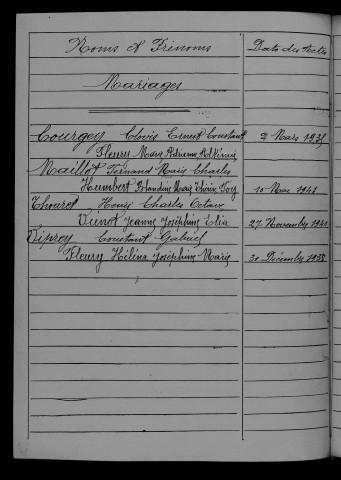 Noms et Prénoms Date des actes
Mariages
Courgey Clovis Ernest Constant 2 Mars 1935
Fleury Marie Adrienne
Maillot Fernand Marie Charles
Humbert Blandine Marie 10 Mai 1941
Thouret Henri Charles Octave
Vuinot Jeanne Joséphine 27 Novembre 1940
Constant Gabriel
Fleury Hélène Joséphine Marie 30 Décembre 1938